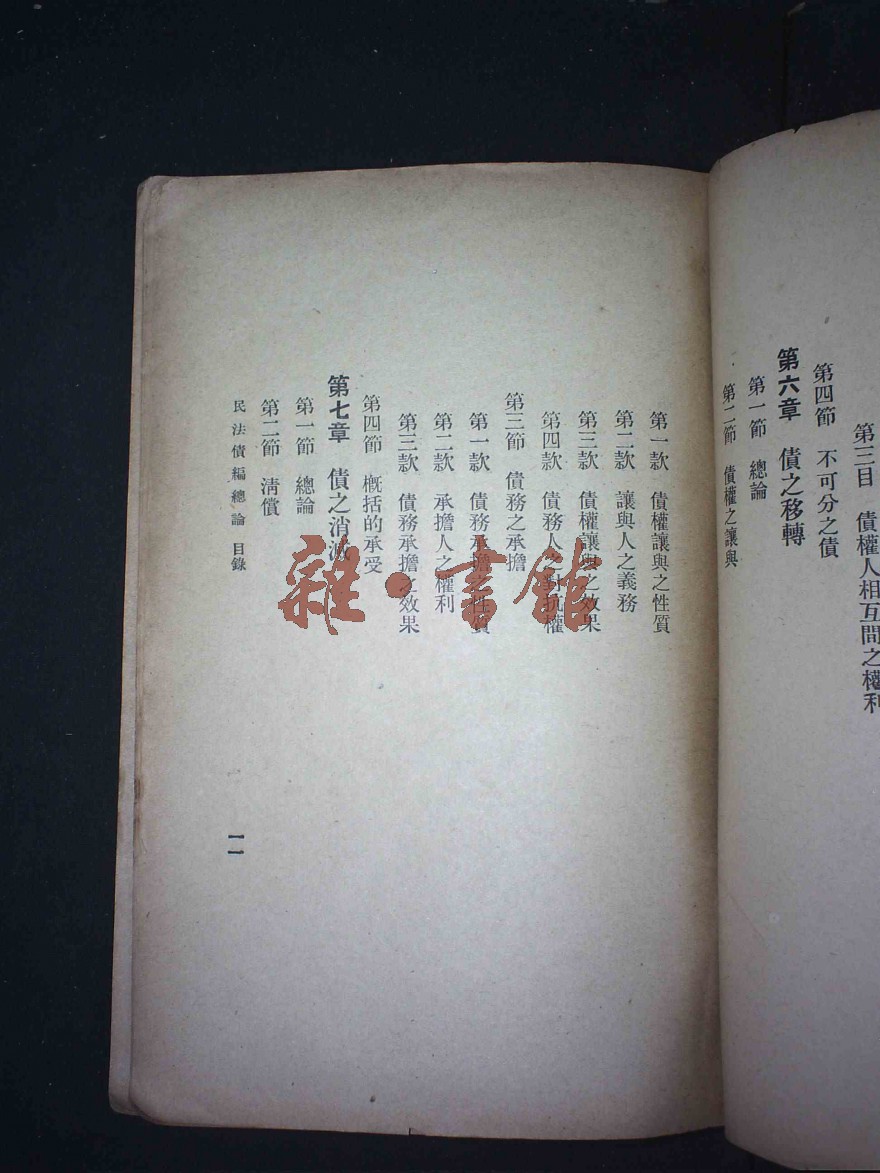 第三目　債權人相互間之權利
第四節　不可分之債
第六章　債之移轉
第一節　總論
第二節　債權之讓與
第一款　債權讓與之性質
第二款　讓與人之義務
第三款　債權讓與之效果
第四款　債務人之對抗權
第三節　債務之承擔
第一款　債務承擔之性質
第二款　承擔人之權利
第三款　債務承擔之效果
第四節　概括的承受
第七章　債之消滅
第一節　總論
第二節　清償
民法債編總論　目錄
一一
雜·書館